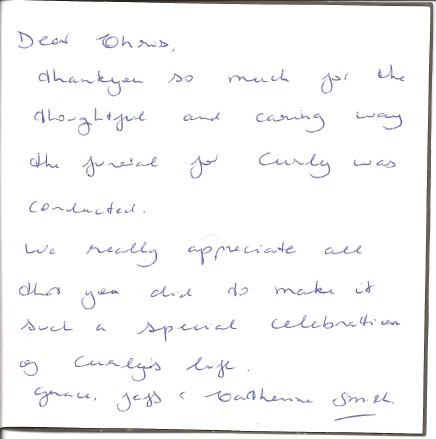 Dear Chris,
thankyou so much for the
thoughtful and caring way
the funeral for Curly was
conducted.
We really appreciate all
that you did to make it
such a special celebration
of Curly's life.
Grace, Jess & Catherine Smith.